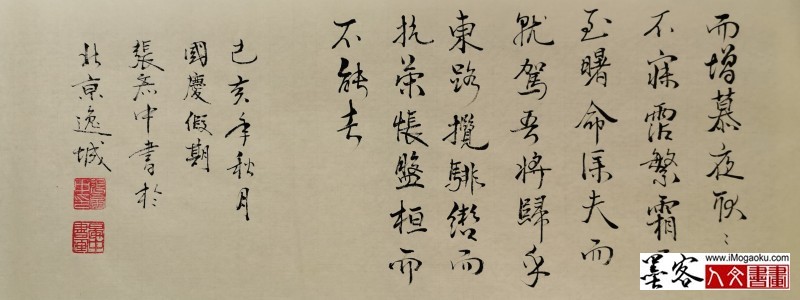 而增慕夜耿〻
不寐霑繁霜而
至曙命僕夫而
就駕吾將歸乎
東路攬騑轡而
抗策悵盤桓而
不能去
己亥年秋月
國慶假期
張中書於
北京逸城
墨客
www.iMogaoku.com
人文書畫